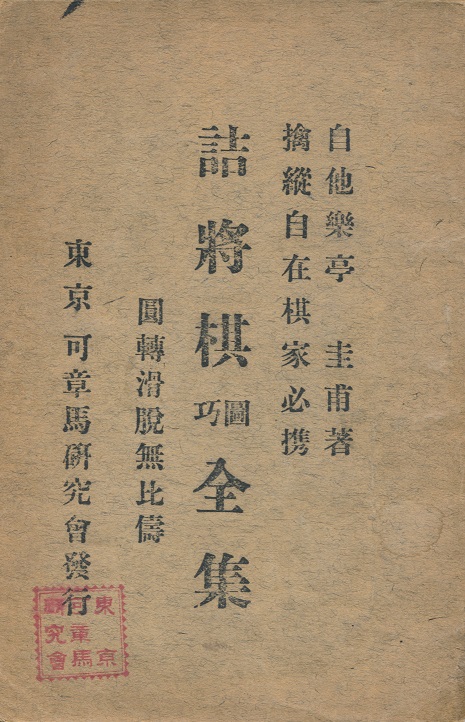 自他樂亭 圭甫著
擒縱自在棋家必携
詰將棋圖巧全集
圓轉滑脫無比儔
東京可章馬研究會發行
東京
可章馬
研究會